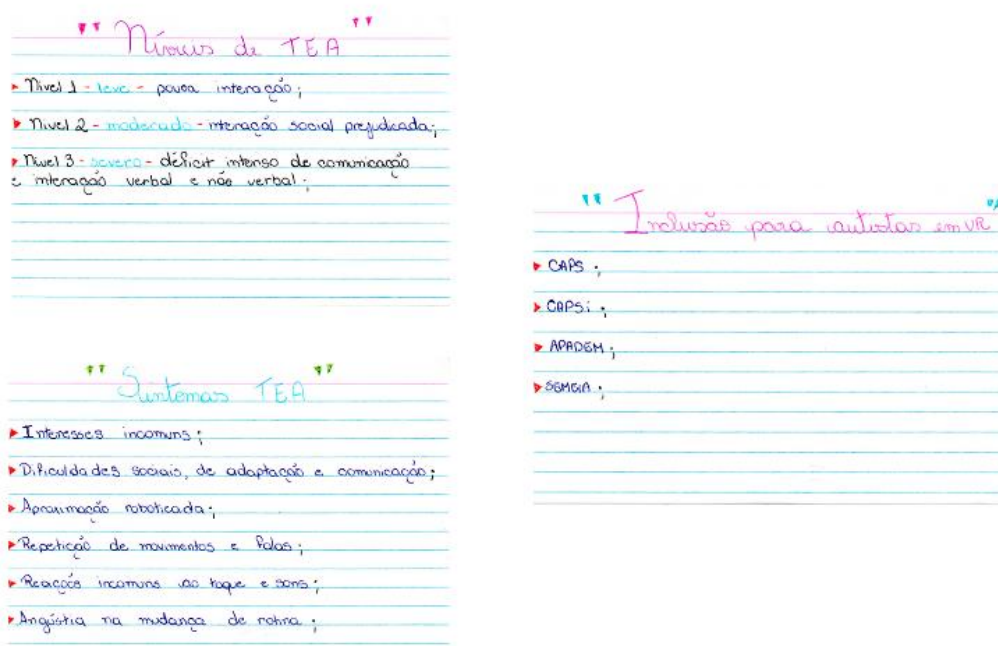 "Níveis de TEA"
Nível 1 - leve - pouca interação;
Nível 2 - moderado - interação social prejudicada;
Nível 3 - severo - déficit intenso de comunicação
e interação verbal e não verbal;
"Sintomas TEA"
Interesses incomuns;
Dificuldades sociais, de adaptação e comunicação;
Aproximação roboticada;
Repetição de movimentos e falas;
Reações incomuns ao toque e sons;
Angústia na mudança de rotina;
"Inclusão para autistas em VR"
CAPS;
CAPSi;
APADEM;